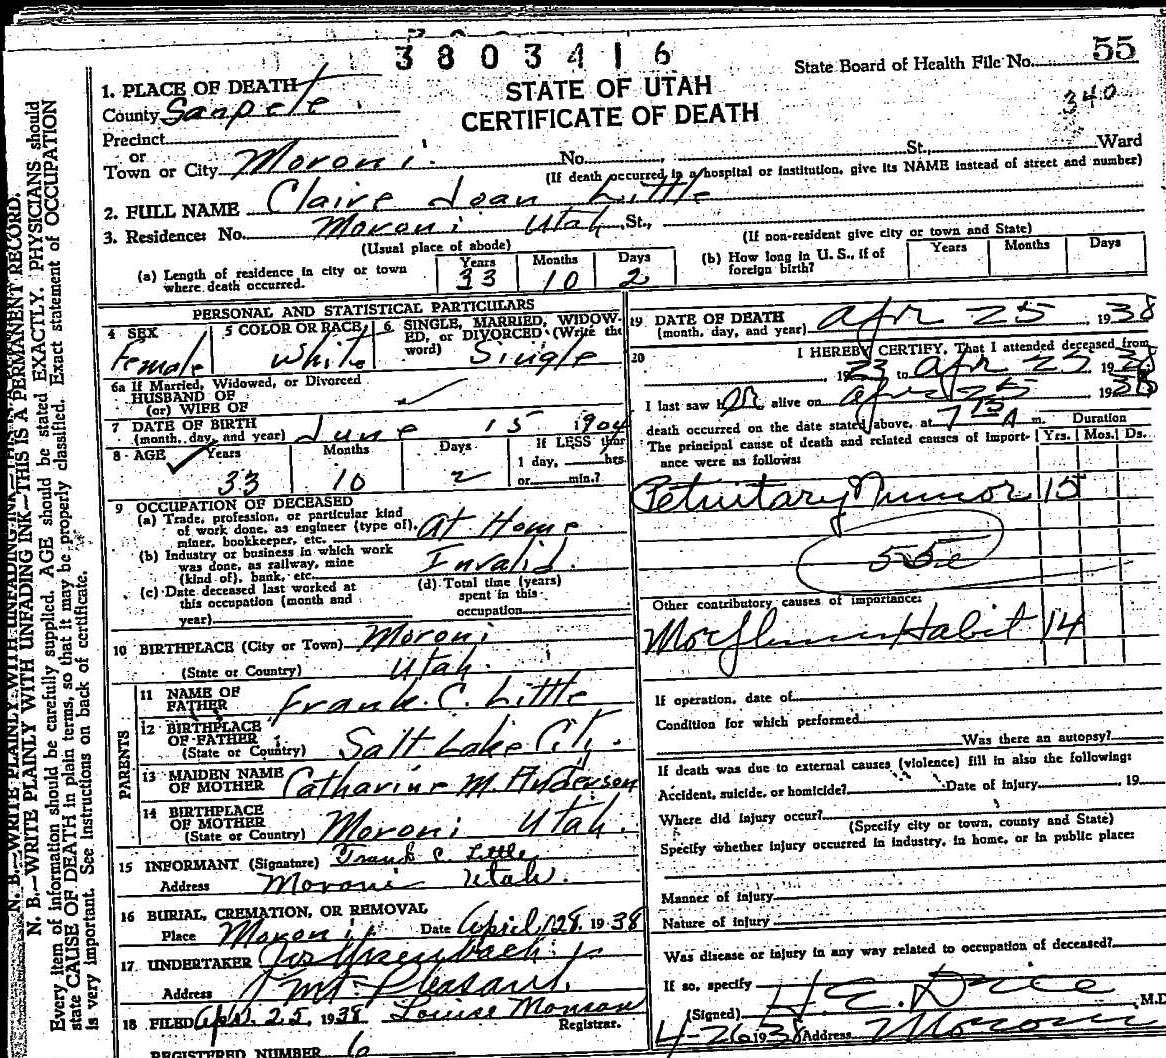 3803416
State Board of Health File No. 55
340
STATE OF UTAH
CERTIFICATE OF DEATH
1. PLACE OF DEATH
County Sanpete
Precinct
or
Town or City Moroni No. St., Ward
(If death occurred in a hospital or institution, give its NAME instead of street and number)
2. FULL NAME Claire Joan Little
3. Residence: No. Moroni Utah St.,
(Usual place of abode)
(If non-resident give city or town and State)
(a) Length of residence in city or town where death occurred. Years 33 Months 10 Days 2
(b) How long in U. S., if of foreign birth? Years Months Days
PERSONAL AND STATISTICAL PARTICULARS
4 SEX Female
5 COLOR OR RACE White
6 SINGLE, MARRIED, WIDOWED, or DIVORCED (Write the word) Single
6a If Married, Widowed, or Divorced
HUSBAND OF
(or) WIFE OF
7 DATE OF BIRTH
(month, day, and year) June 15 1904
8 AGE Years 33 Months 10 Days 2
If LESS than
1 day, hrs.
or min.?
9 OCCUPATION OF DECEASED
(a) Trade, profession, or particular kind
of work done, as engineer (type of),
miner, bookkeeper, etc. At Home
(b) Industry or business in which work
was done, as railway, mine
(kind of), bank, etc. Invalid
(c) Date deceased last worked at
this occupation (month and
year)
(d) Total time (years)
spent in this
occupation
10 BIRTHPLACE (City or Town) Moroni
(State or Country) Utah.
PARENTS
11 NAME OF
FATHER Frank. C. Little
12 BIRTHPLACE
OF FATHER
(State or Country) Salt Lake City.
13 MAIDEN NAME
OF MOTHER Catharine M. Anderson
14 BIRTHPLACE
OF MOTHER
(State or Country) Moroni Utah.
15 INFORMANT (Signature) Frank C Little
Address Moroni Utah.
16 BURIAL, CREMATION, OR REMOVAL
Place Moroni Date April 28. 1938
17 UNDERTAKER
Address Mt. Pleasant.
18 FILED Apr. 25, 1938 Louise Monson
Registrar.
REGISTERED NUMBER 6
19 DATE OF DEATH
(month, day, and year) Apr 25 1938
20 I HEREBY CERTIFY, That I attended deceased from
1933 to Apr 25 1938
I last saw her alive on Apr 25 1938
death occurred on the date stated above, at 7 15 A m.
Duration
The principal cause of death and related causes of importance were as follows: Yrs. Mos. Ds.
Petuitary Numor 15
55e
Other contributory causes of importance:
Habit 14
If operation, date of
Condition for which performed
Was there an autopsy?
If death was due to external causes (violence) fill in also the following:
Accident, suicide, or homicide? Date of injury 19
Where did injury occur?
(Specify city or town, county and State)
Specify whether injury occurred in industry, in home, or in public place:
Manner of injury
Nature of injury
Was disease or injury in any way related to occupation of deceased?
If so, specify
(Signed) M.D
4-26 1938 Address Moroni
N. B.—WRITE PLAINLY WITH UNFADING INK—THIS IS A PERMANENT RECORD.
Every item of information should be carefully supplied. AGE should be stated EXACTLY. PHYSICIANS should
state CAUSE OF DEATH in plain terms, so that it may be properly classified. Exact statement of OCCUPATION
is very important. See Instructions on back of certificate.